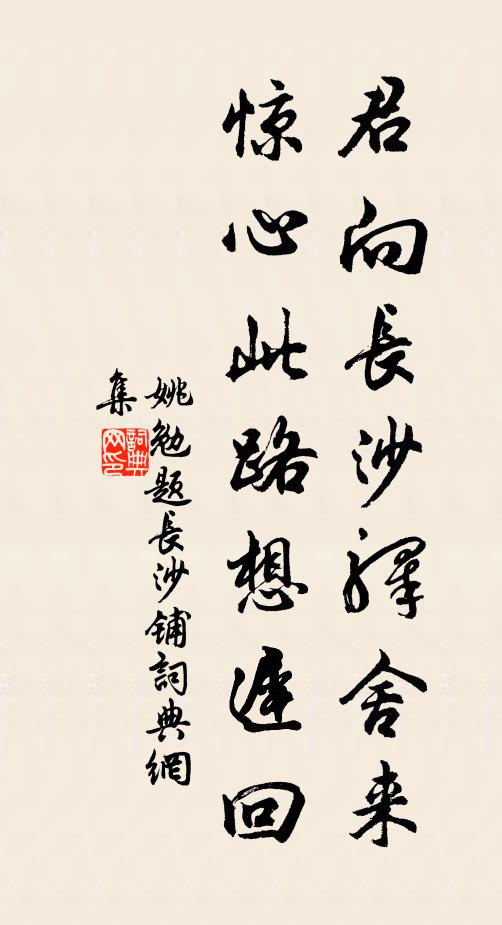 君向長沙驛舍来
惊心此路想遲回
姚勉题長沙铺詞典網
集
詞典
网印